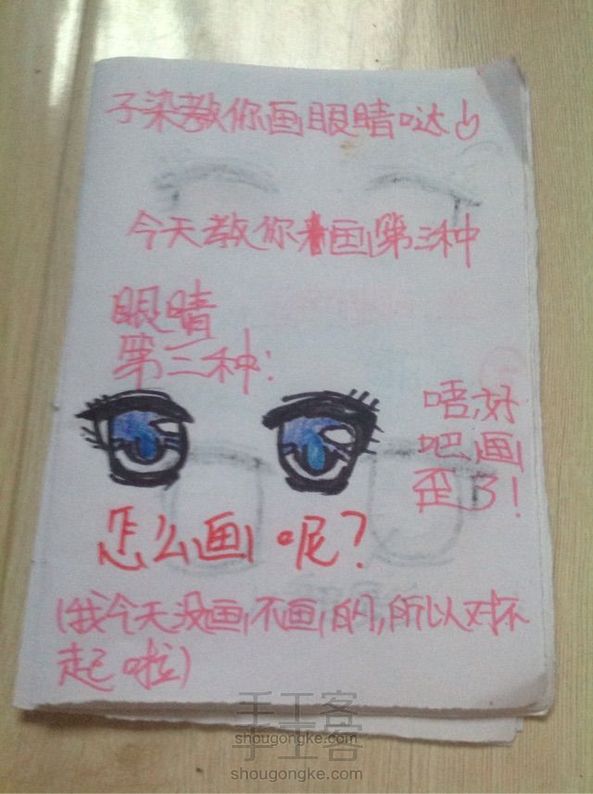 子染教你画眼睛哒
今天教你画第三种
眼睛
第三种:
唔,好
吧,画
歪了!
怎么画呢?
(我今天没画,不画的,所以对不
起啦)
手工客
shougongke.com
手工客
shougongke.com